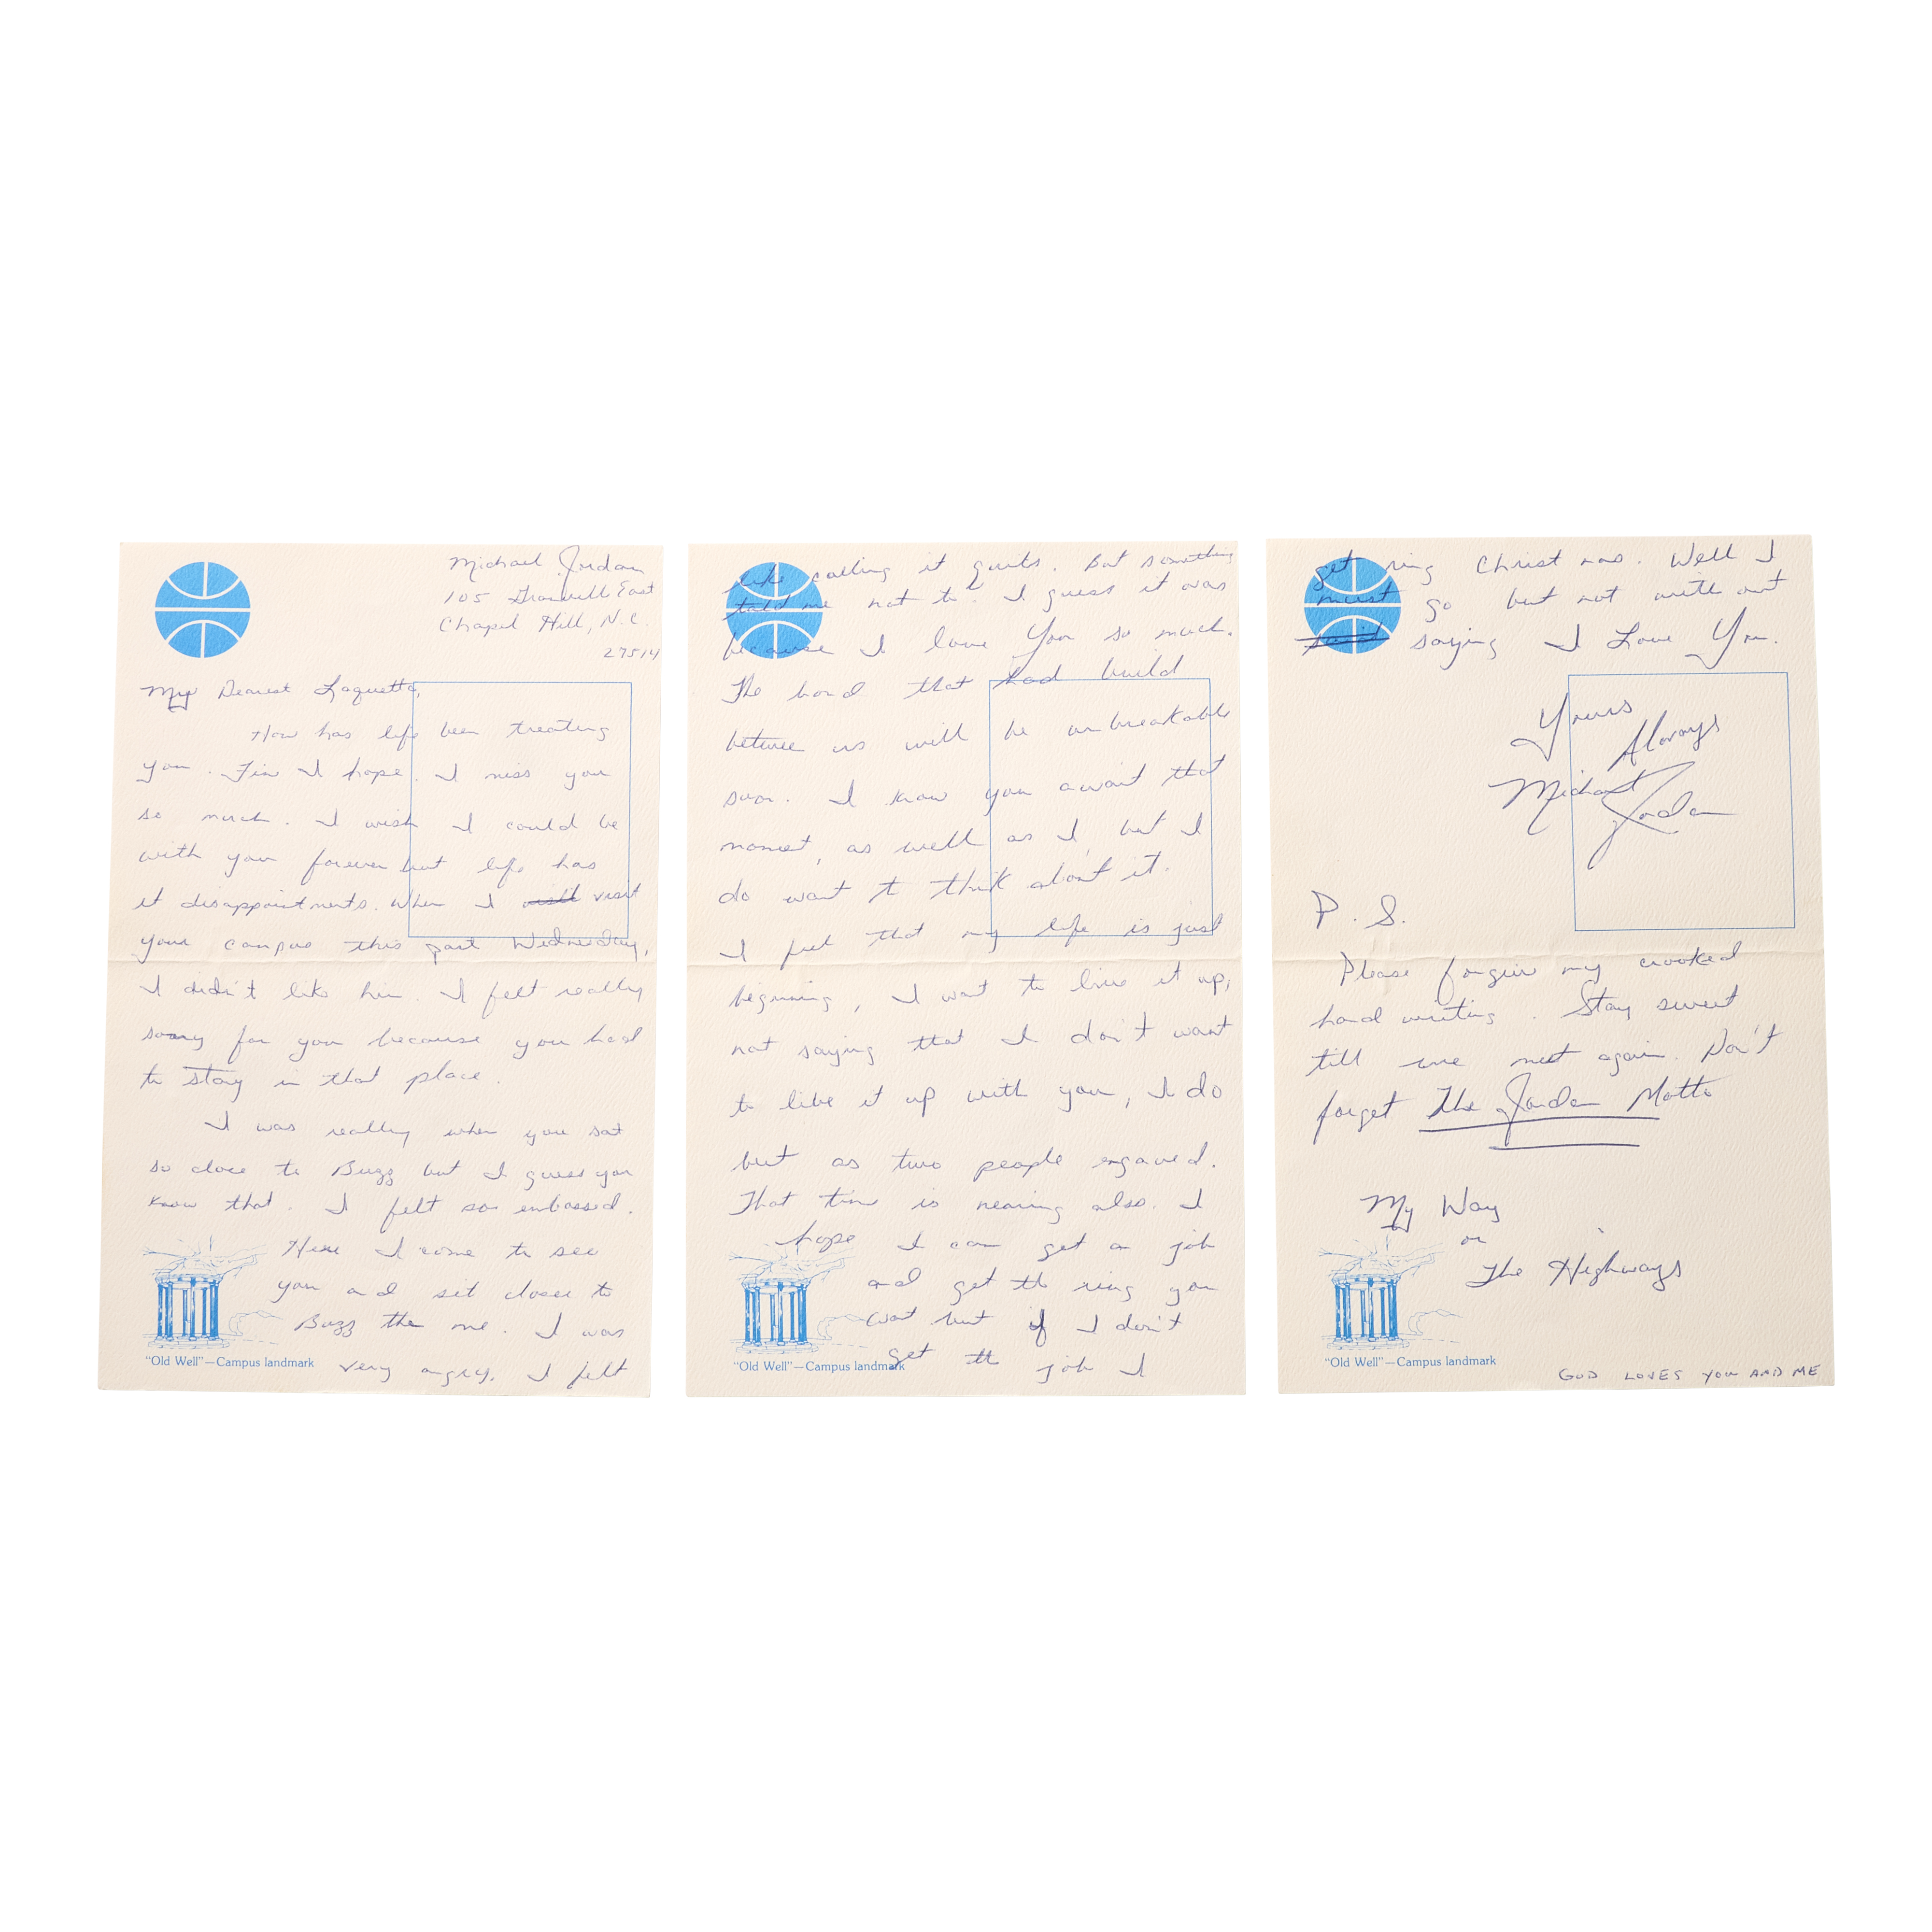 Michael Jordan
105 Granville East
Chapel Hill, N.C.
27514
My Dearest Laquetta,
How has life been treating
you. Fin I hope. I miss you
so much. I wish I could be
with you forever but life has
it disappointments. When I visit
your campus this past Wednesday,
I didn't like him. I felt really
sorry for you because you had
to stay in that place.
I was really when you sat
so close to Buzz but I guess you
know that. I felt so embassed.
Here I come to see
you and sit closer to
Buzz the me. I was
very angry. I felt
"Old Well"—Campus landmark
like calling it quits. But something
told me not to. I guess it was
because I love You so much.
The bond that had build
betwee us will be unbreakable
soon. I know you await that
moment, as well as I, but I
do want to think about it.
I feel that my life is just
beginning, I want to live it up,
not saying that I don't want
to live it up with you, I do
but as two people engaued.
That time is nearing also. I
hope I can get a job
and get the ring you
want but if I don't
get the job I
"Old Well"—Campus landmark
get ring Christmas. Well I
must go but not with out
saying I Love You.
Yours
Always
Michael
Jordan
P.S.
Please forgive my crooked
hand writing. Stay sweet
till we meet again. Don't
forget The Jordan Motto
My Way
or
The Highways
"Old Well"—Campus landmark
GOD LOVES YOU AND ME